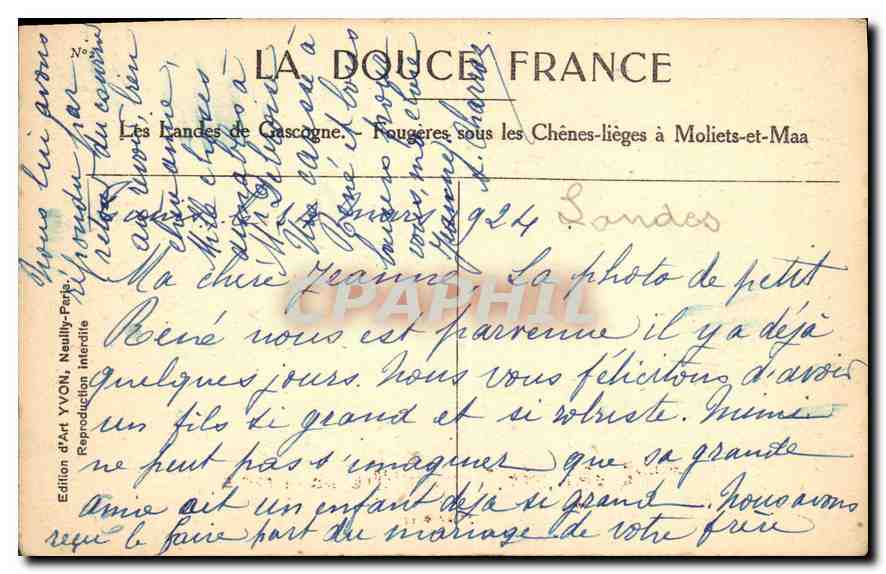 N°
LA DOUCE FRANCE
Les Landes de Gascogne. - Fougères sous les Chênes-lièges à Moliets-et-Maa
Landes
mars 1924
Ma chère Jeanne, La photo de petit
René nous est parvenue il y a déjà
quelques jours. Nous vous félicitons d'avoir
un fils si grand et si robuste. Mimi
ne peut pas s'imaginer que sa grande
amie ait un enfant déjà si grand. Nous avons
reçu le faire part du mariage de votre frère
Nous lui avons
répondu par
retour du courrier
au revoir, bien
chère amie,
Mille choses
aimables à
Mr
Une caresse à
René et bons
baisers pour
vous, ma chère
Jeanne.
Edition d'Art YVON, Neuilly-Paris.
Reproduction interdite
CPAPHIL